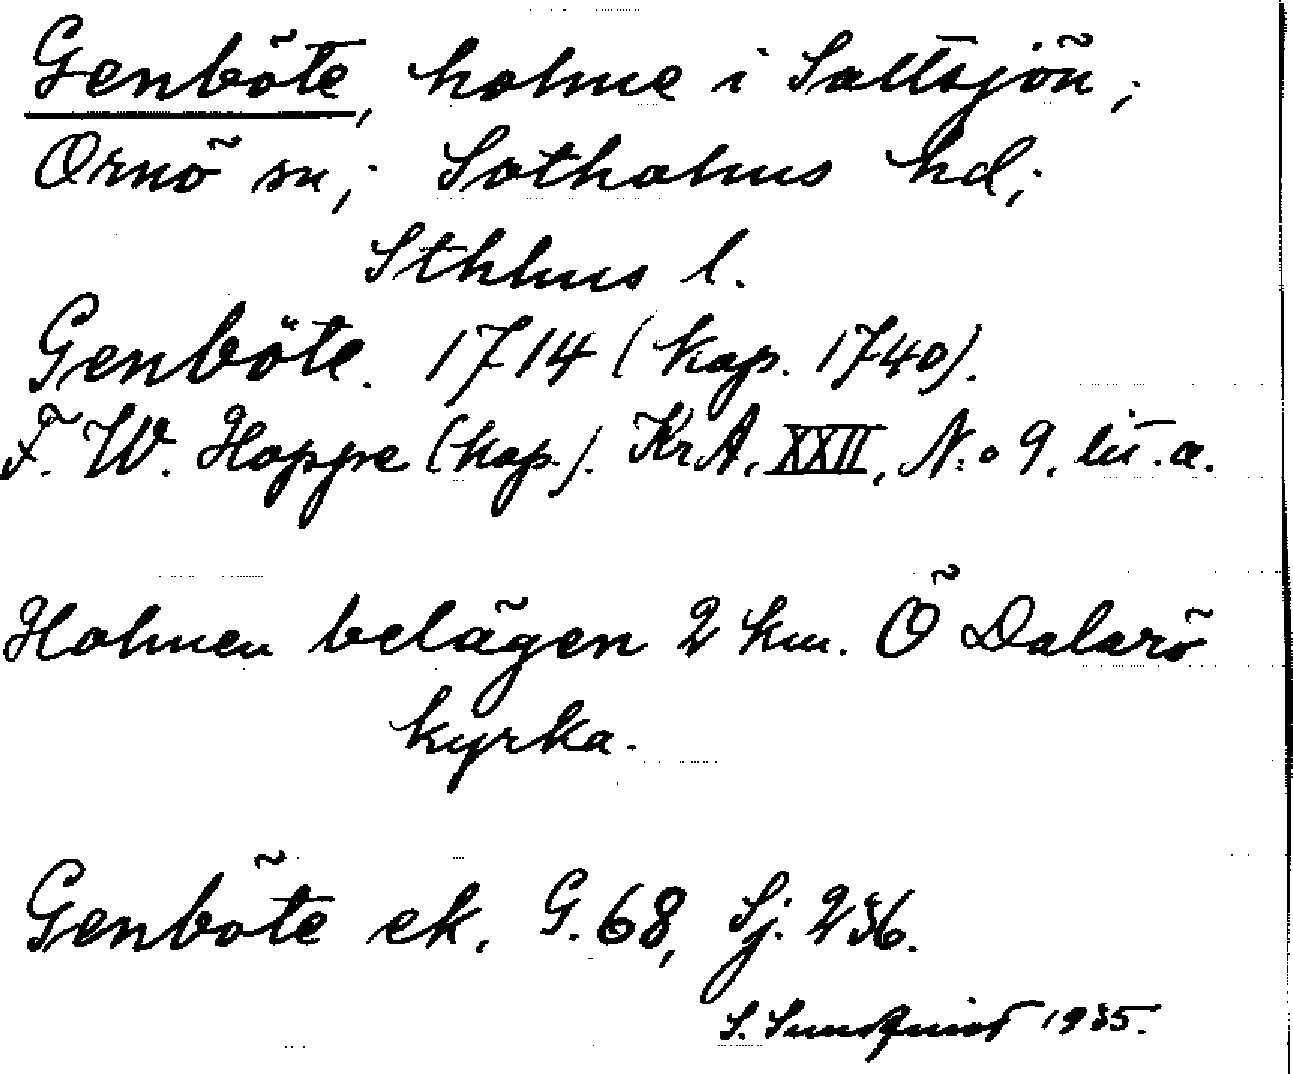 Genböte, holme i Saltsjön;
Ornö sn; Sotholms hd;
Sthlms l.
Genböte. 1714 (kop. 1740).
F. W. Hoppe (kop.). KrA, XXII, N:o 9. lit. a.
Holmen belägen 2 km. Ö Dalarö
kyrka.
Genböte ek. G. 68, Sj. 236.
S. Sundqvist 1935.